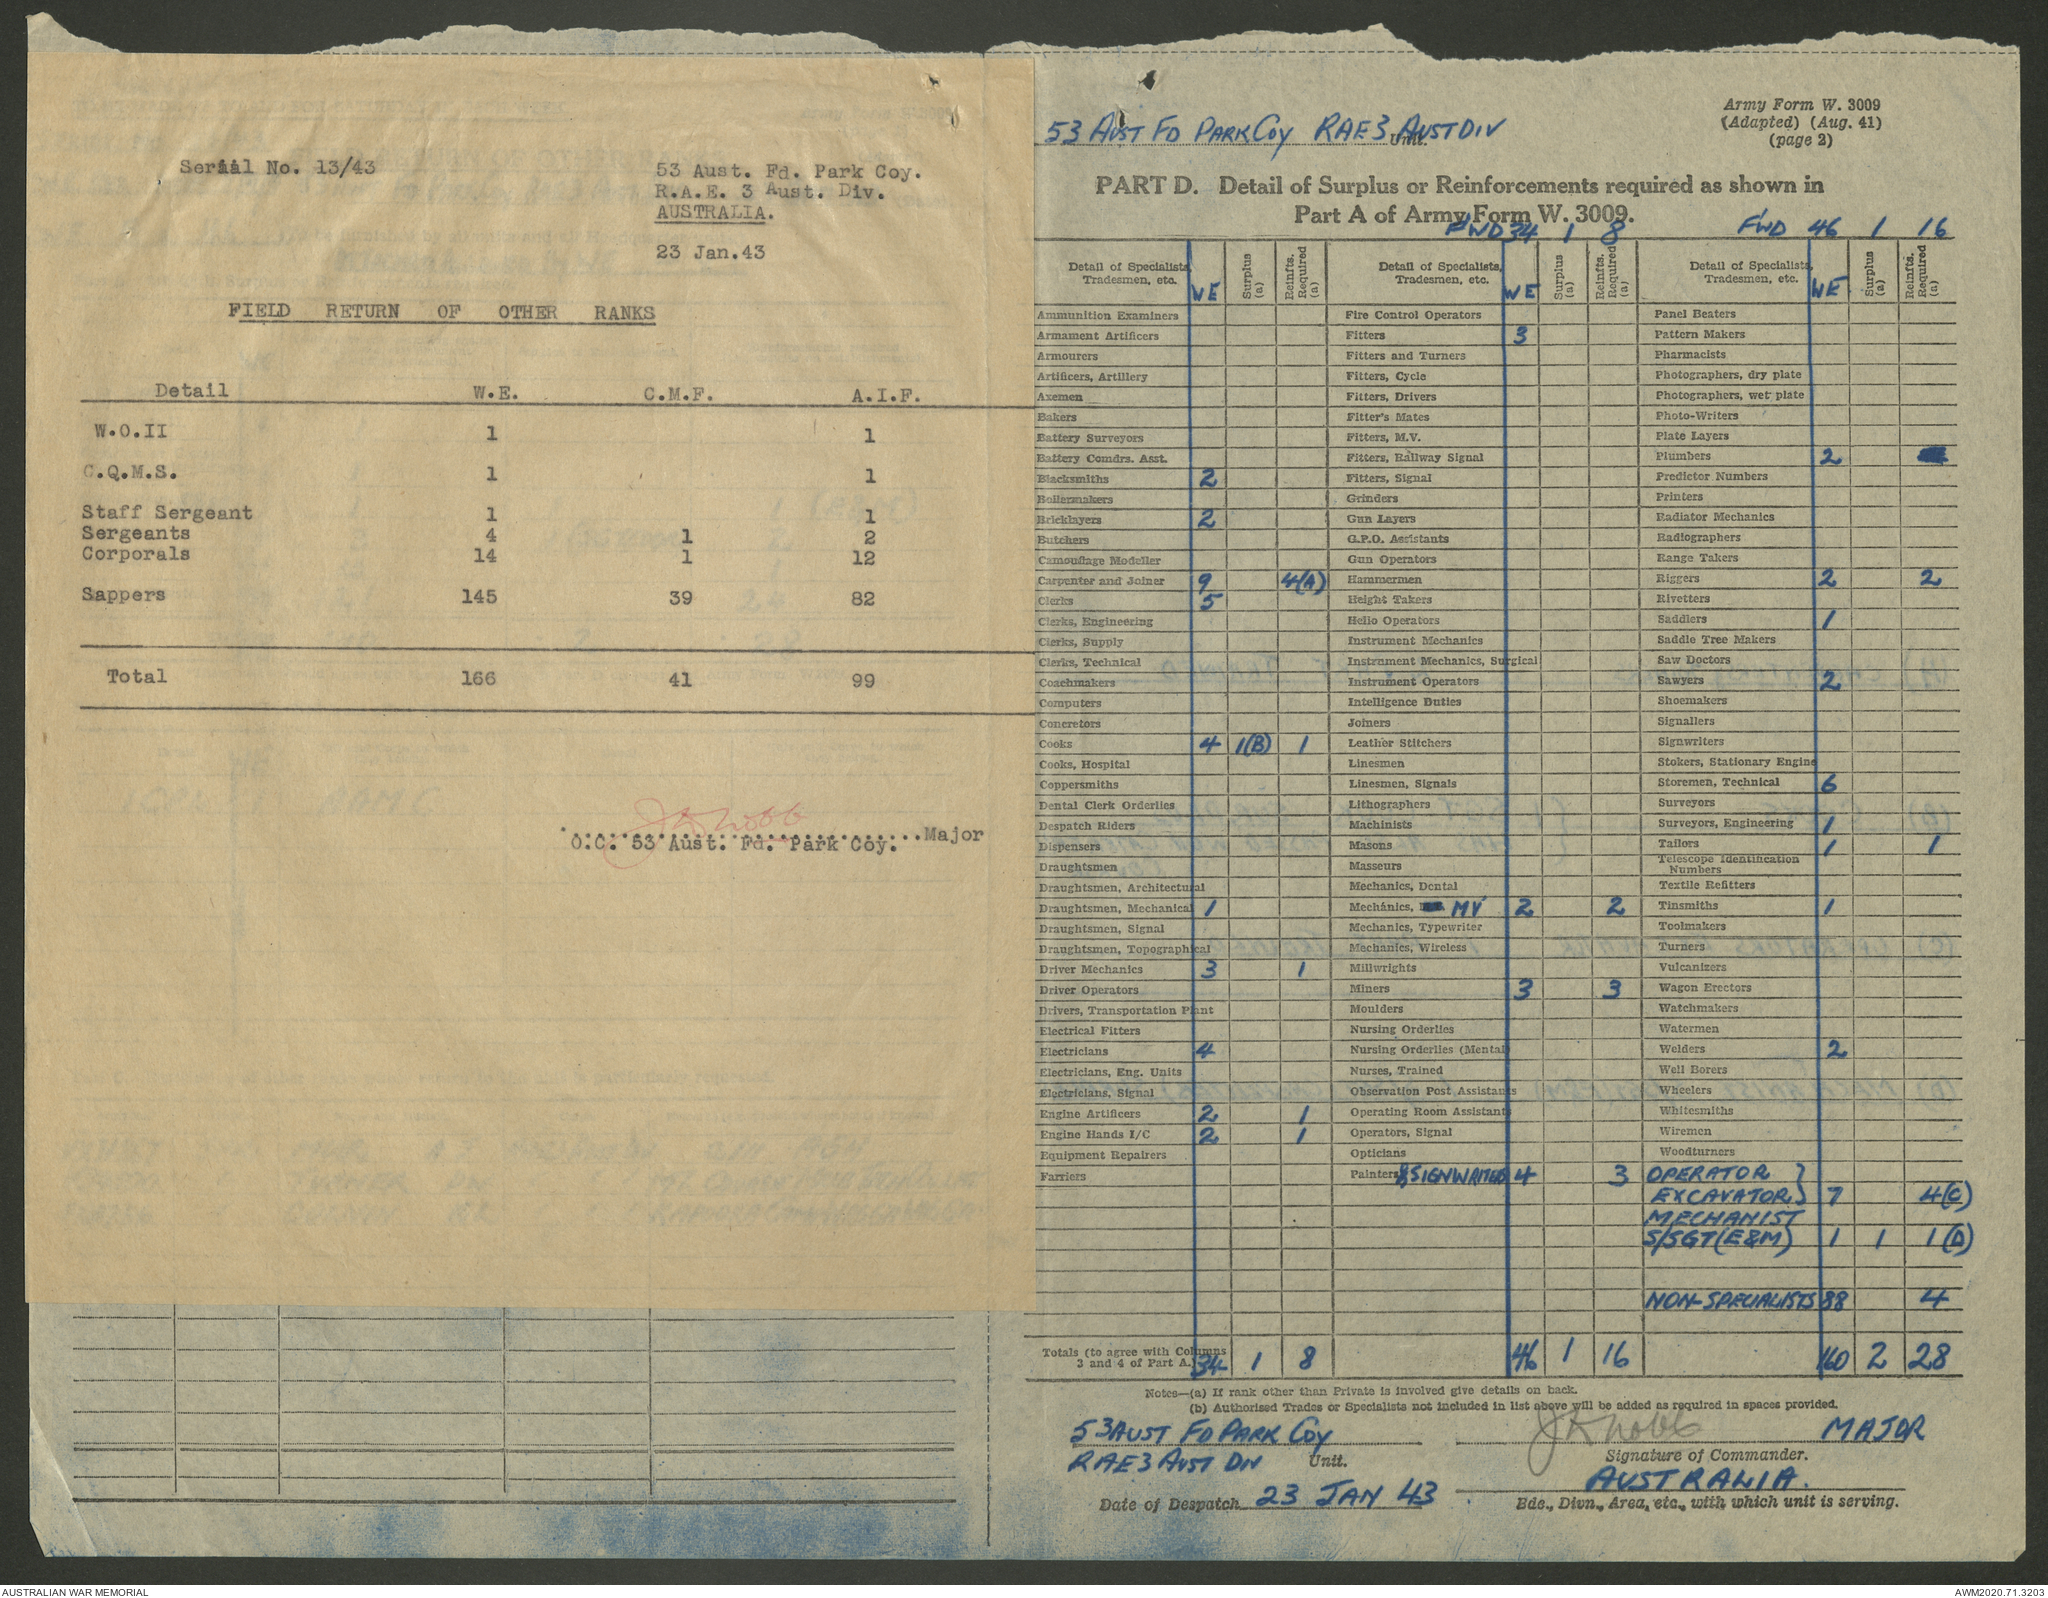 Serial No. 13/43
53 Aust. Fd. Park Coy.
R.A.E. 3 Aust. Div.
AUSTRALIA.
23 Jan.43
FIELD RETURN OF OTHER RANKS
Detail W.E. C.M.F. A.I.F.
W.O.II 1 1
C.Q.M.S. 1 1
Staff Sergeant 1 1
Sergeants 4 1 2
Corporals 14 1 12
Sappers 145 39 82
Total 166 41 99
..............................Major
O.C. 53 Aust. Fd. Park Coy.
Army Form W. 3009
(Adapted) (Aug. 41)
(page 2)
53 AUST FD PARK COY RAE 3 AUST DIV
Unit.
PART D. Detail of Surplus or Reinforcements required as shown in
Part A of Army Form W. 3009.
FWD 34 1 8
FWD 46 1 16
Detail of Specialists, Tradesmen, etc. WE Surplus (a) Reinfts. Required (a)
Ammunition Examiners
Armament Artificers
Armourers
Artificers, Artillery
Axemen
Bakers
Battery Surveyors
Battery Comdrs. Asst.
Blacksmiths 2
Boilermakers
Bricklayers 2
Butchers
Camouflage Modeller
Carpenter and Joiner 9 4(A)
Clerks 5
Clerks, Engineering
Clerks, Supply
Clerks, Technical
Coachmakers
Computers
Concretors
Cooks 4 1(B) 1
Cooks, Hospital
Coppersmiths
Dental Clerk Orderlies
Despatch Riders
Dispensers
Draughtsmen
Draughtsmen, Architectural
Draughtsmen, Mechanical 1
Draughtsmen, Signal
Draughtsmen, Topographical
Driver Mechanics 3 1
Driver Operators
Drivers, Transportation Plant
Electrical Fitters
Electricians 4
Electricians, Eng. Units
Electricians, Signal
Engine Artificers 2 1
Engine Hands I/C 2 1
Equipment Repairers
Farriers
Totals (to agree with Columns 3 and 4 of Part A.) 34 1 8
Detail of Specialists, Tradesmen, etc. WE Surplus (a) Reinfts. Required (a)
Fire Control Operators
Fitters 3
Fitters and Turners
Fitters, Cycle
Fitters, Drivers
Fitter's Mates
Fitters, M.V.
Fitters, Railway Signal
Fitters, Signal
Grinders
Gun Layers
G.P.O. Assistants
Gun Operators
Hammermen
Height Takers
Helio Operators
Instrument Mechanics
Instrument Mechanics, Surgical
Instrument Operators
Intelligence Duties
Joiners
Leather Stitchers
Linesmen
Linesmen, Signals
Lithographers
Machinists
Masons
Masseurs
Mechanics, Dental
Mechanics, MV 2 2
Mechanics, Typewriter
Mechanics, Wireless
Millwrights
Miners 3 3
Moulders
Nursing Orderlies
Nursing Orderlies (Mental)
Nurses, Trained
Observation Post Assistants
Operating Room Assistants
Operators, Signal
Opticians
Painters & SIGNWRITER 4 3
46 1 16
Detail of Specialists, Tradesmen, etc. WE Surplus (a) Reinfts. Required (a)
Panel Beaters
Pattern Makers
Pharmacists
Photographers, dry plate
Photographers, wet plate
Photo-Writers
Plate Layers
Plumbers 2
Predictor Numbers
Printers
Radiator Mechanics
Radiographers
Range Takers
Riggers 2 2
Rivetters
Saddlers 1
Saddle Tree Makers
Saw Doctors
Sawyers 2
Shoemakers
Signallers
Signwriters
Stokers, Stationary Engine
Storemen, Technical 6
Surveyors
Surveyors, Engineering 1
Tailors 1 1
Telescope Identification Numbers
Textile Refitters
Tinsmiths 1
Toolmakers
Turners
Vulcanizers
Wagon Erectors
Watchmakers
Watermen
Welders 2
Well Borers
Wheelers
Whitesmiths
Wiremen
Woodturners
OPERATOR }
EXCAVATOR } 7 4(C)
MECHANIST
S/SGT (E&M) 1 1 1(D)
NON-SPECIALISTS 88 4
160 2 28
Notes—(a) If rank other than Private is involved give details on back.
(b) Authorised Trades or Specialists not included in list above will be added as required in spaces provided.
53 AUST FD PARK COY
RAE 3 AUST DIV Unit.
Date of Despatch 23 JAN 43
MAJOR
Signature of Commander.
AUSTRALIA.
Bde., Divn., Area, etc., with which unit is serving.
AUSTRALIAN WAR MEMORIAL
AWM2020.71.3203